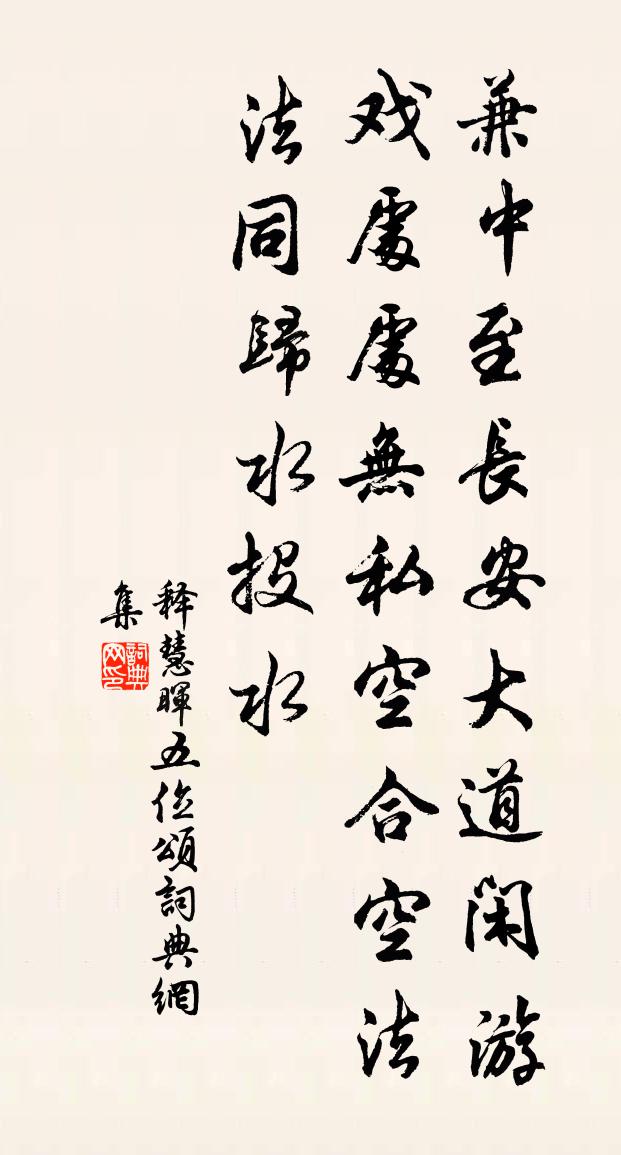 兼中至長安大道閑游
戏處處無私空合空法
法同歸水投水
释慧暉五位頌詞典網
集
詞典网印